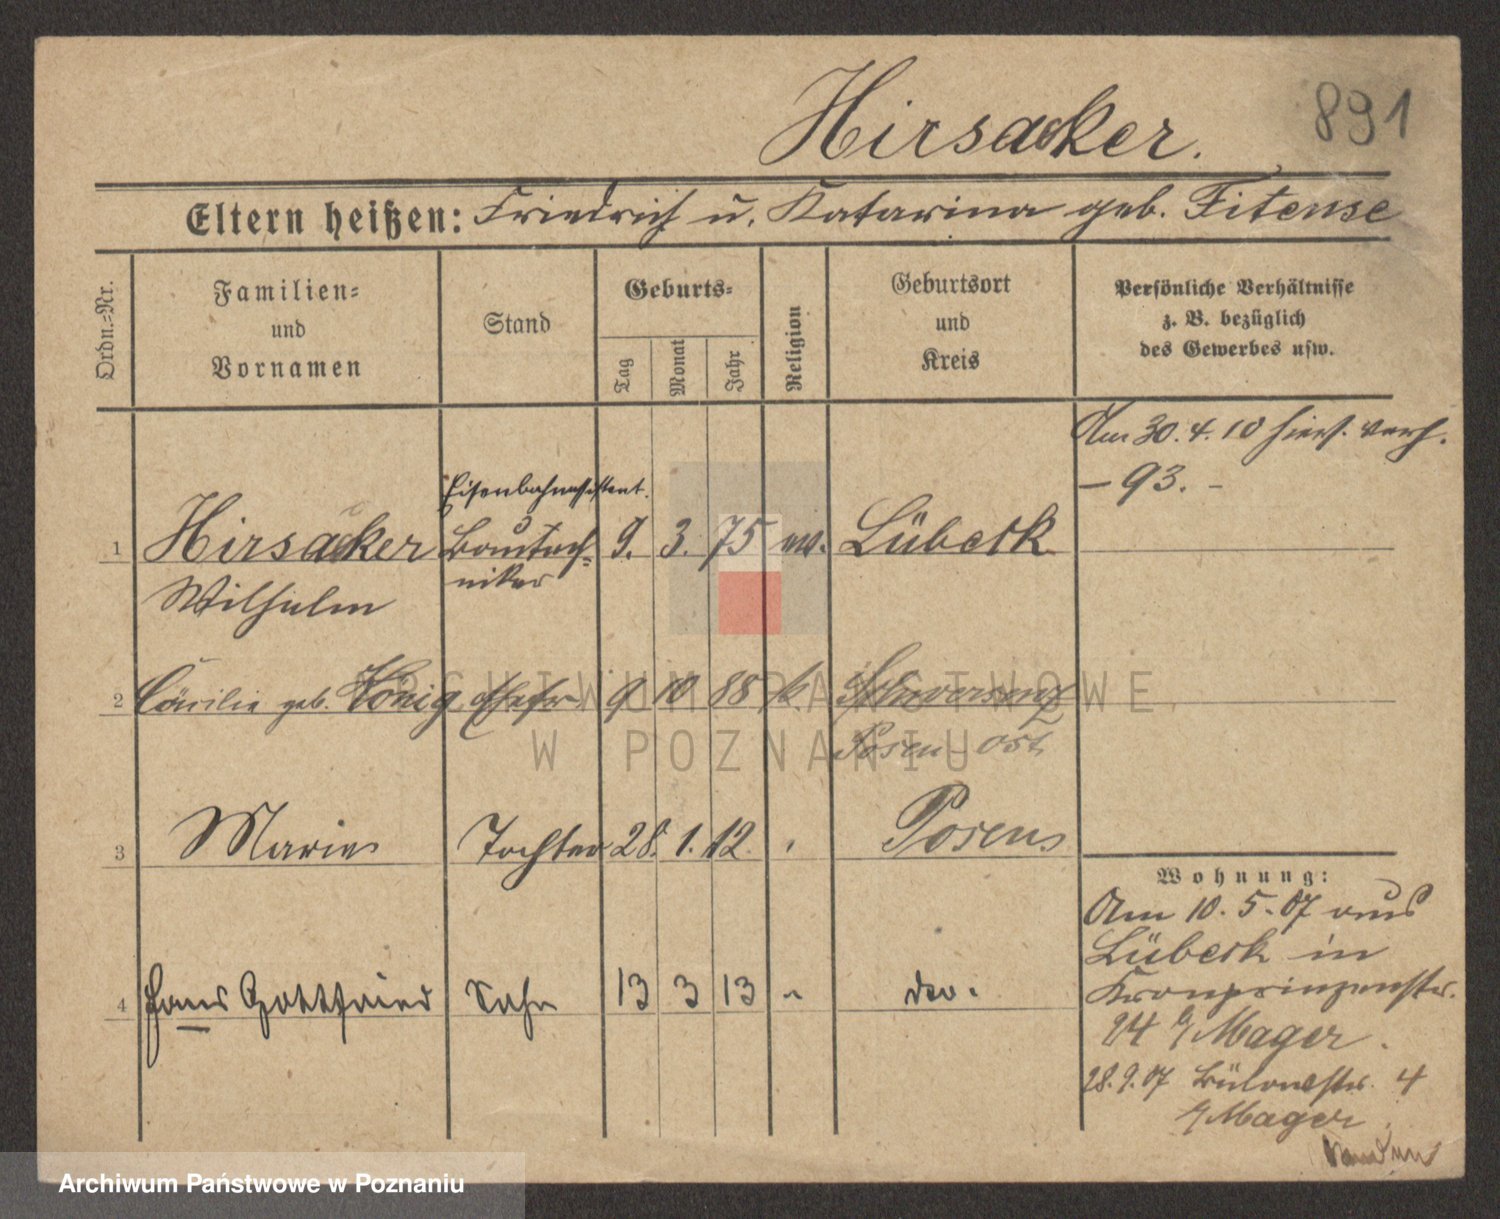 891
Hirsacker.
Eltern heißen: Friedrich u. Katarina geb. Fitense
Ordn.=Nr.
Familien=
und
Vornamen
Stand
Geburts=
Tag
Monat
Jahr
Religion
Geburtsort
und
Kreis
Persönliche Verhältnisse
z. B. bezüglich
des Gewerbes usw.
Am 30. 4. 10 hies. verh.
- 93. -
Eisenbahnassistent.
1 Hirsacker Bautech= 9. 3. 75 ev. Lübeck
Wilhelm niker
2 Cäcilie geb. König Ehefr 9 10 88 k. Schwersenz
Posen-Ost
3 Marie Tochter 28. 1. 12. Posen
4 Hans Gottfried Sohn 13 3 13 " do.
Wohnung:
Am 10. 5. 07 aus
Lübeck in
Kronprinzenstr.
94 b/Mager.
28. 9. 07 Bülowstr. 4
b/Mager
ARCHIWUM PAŃSTWOWE
W POZNANIU
Archiwum Państwowe w Poznaniu